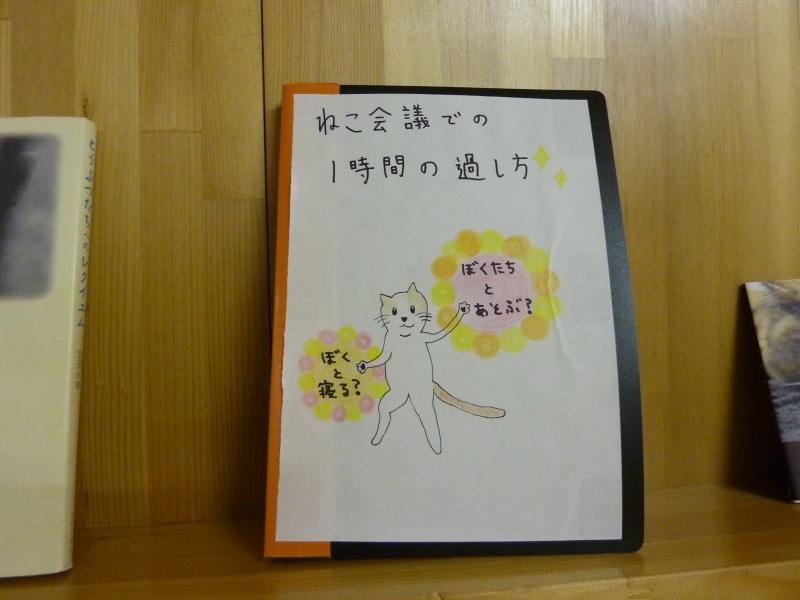 ねこ会議での
1時間の過し方
ぼくたち
と
あそぶ?
ぼく
と
寝る?
どうぶつたちへのレクイエム